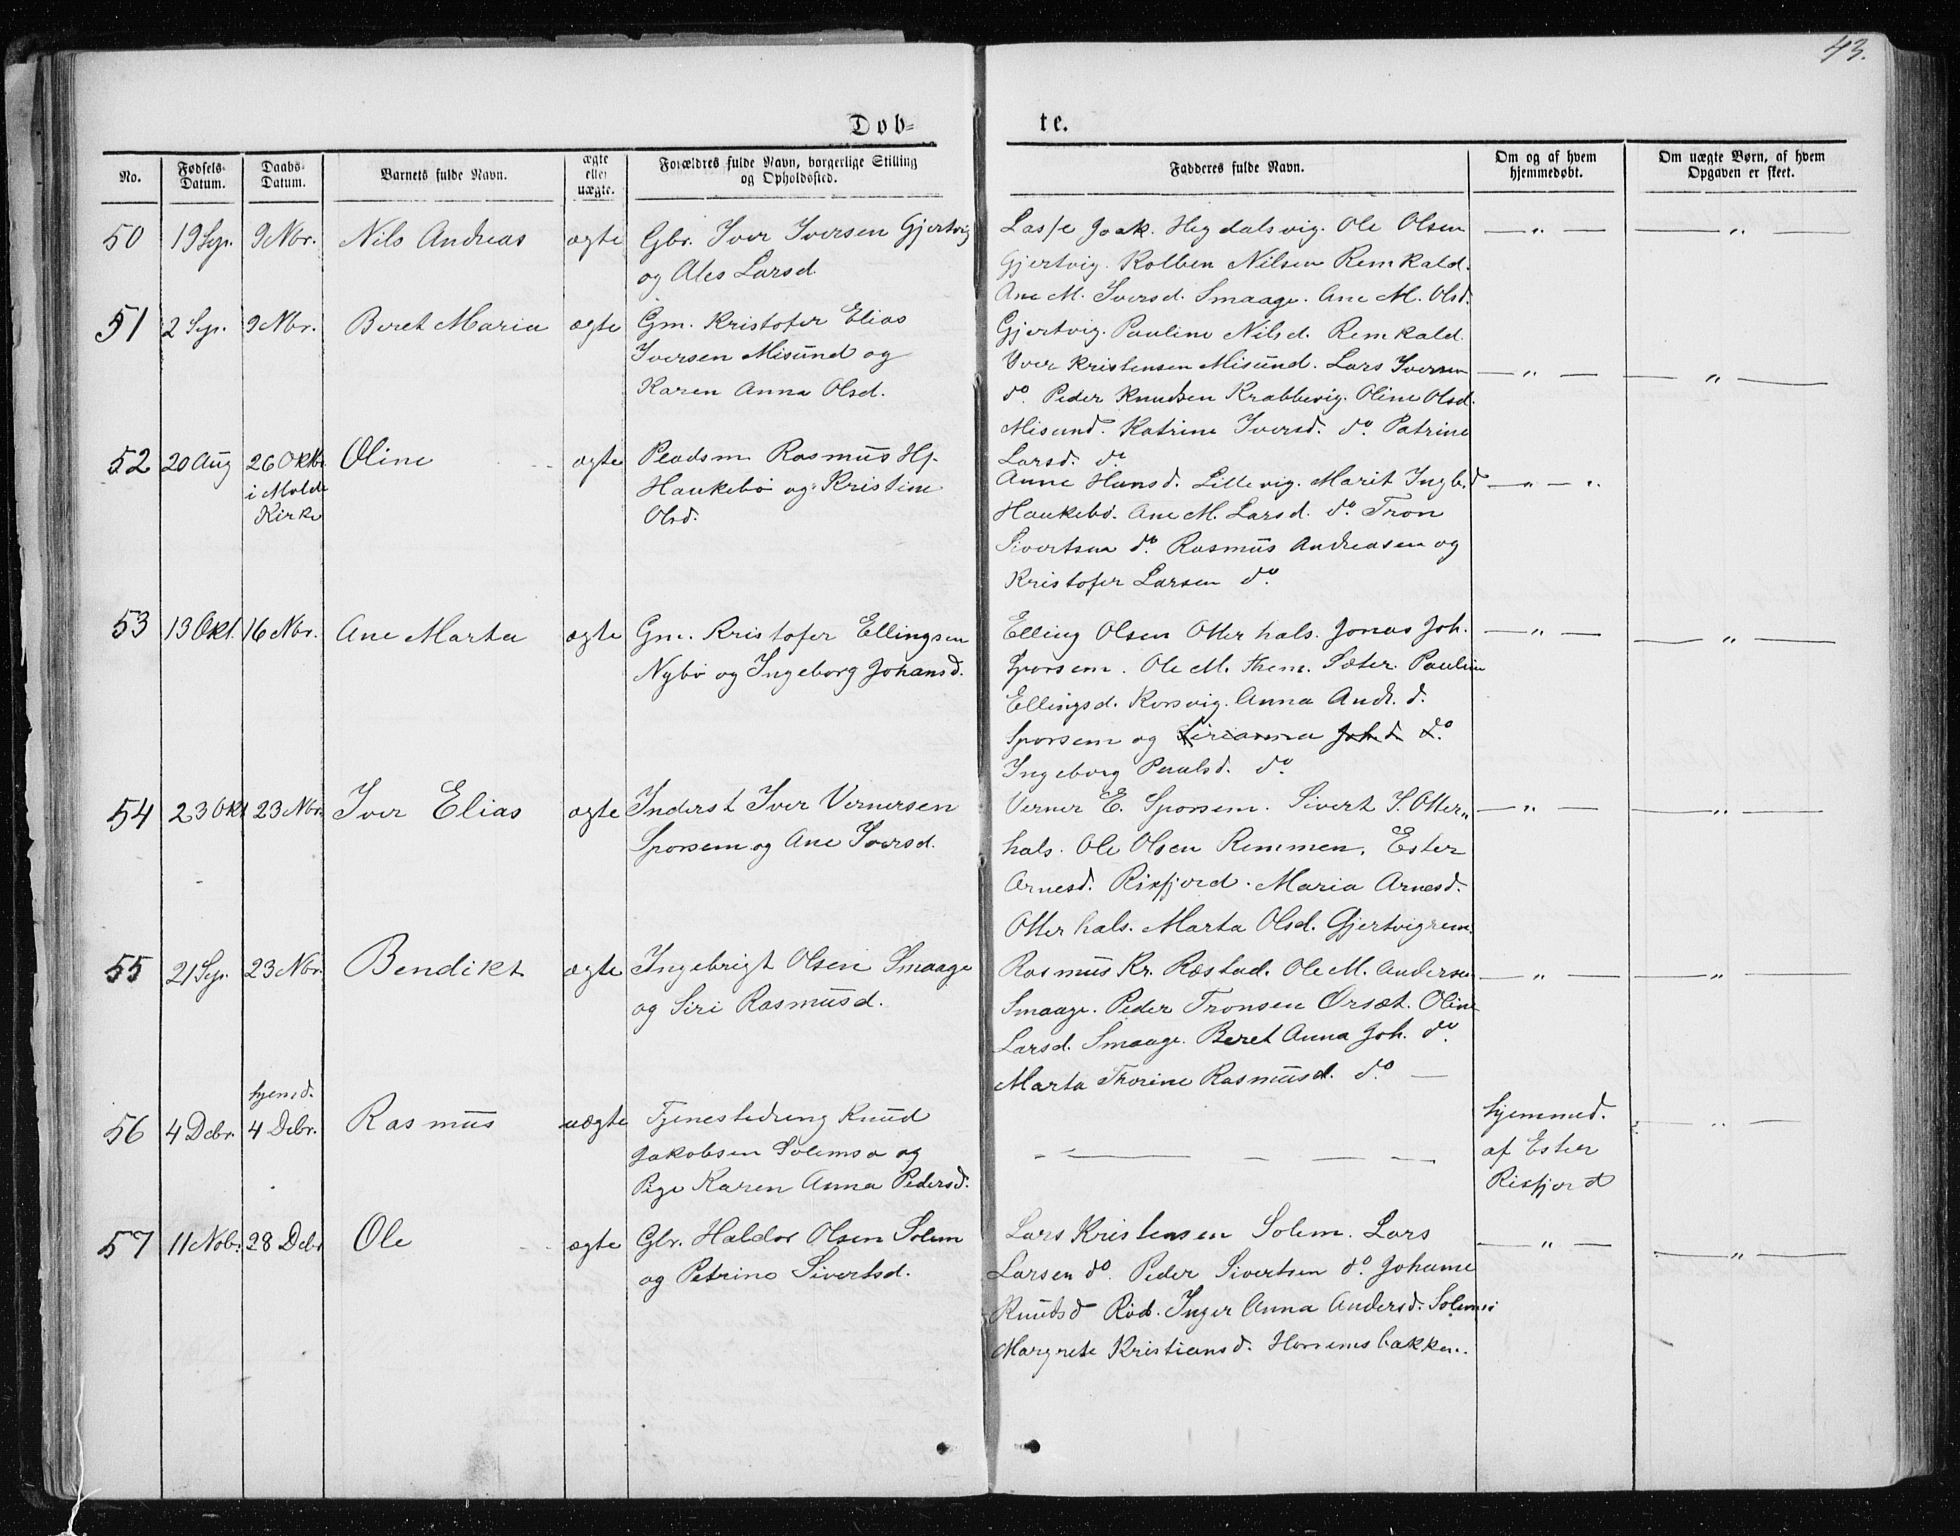 43.
Døb- te.
No. Fødsels-Datum. Daabs-Datum. Barnets fulde Navn. ægte eller uægte. Forældres fulde Navn, borgerlige Stilling og Opholdssted. Fadderes fulde Navn. Om og af hvem hjemmedøbt. Om uægte Børn, af hvem Opgaven er skeet.
50 19 Sep. 9 Nbr. Nils Andreas ægte Gbr. Iver Iversen Gjertvig
og Ales Larsd.
Lasse Joak. Hegdalsvig. Ole Olsen — „ — — „ —
Gjertvig. Kolben Nilsen Remkald.
Ane M. Iversd. Smaage. Ane M. Olsd.
Gjertvig. Pauline Nilsd. Remkald.
51 2 Sep. 9 Nbr. Beret Maria ægte Gm. Kristofer Elias
Iversen Misund og
Karen Anna Olsd.
Iver Kristensen Misund. Lars Iversen — „ — — „ —
do. Peder Knudsen Krabbevig. Oline Olsd.
Misund. Katrine Iversd. do. Patrine
Larsd. do.
52 20 Aug 26 Oktbr. i Molde Kirke Oline ægte Pladsm. Rasmus Hj.
Haukebø og Kristine
Olsd.
Anne Hansd. Lillevig. Marit Ingb.d. — „ — „
Haukebø. Ane M. Larsd. do. Tron
Sivertsen do. Rasmus Andreasen og
Kristofer Larsen do.
53 13 Okt. 16 Nbr. Ane Marta ægte Gm. Kristofer Ellingsen
Nybø og Ingeborg Johansd.
Elling Olsen Otterhals. Jonas Joh. — „ — — „ —
Sporsem. Ole M. Sæter. Pauline
Ellingsd. Korsvig. Anna And. d.
Sporsem og Sirianna Joh.d. do.
Ingeborg Paulsd. do.
54 23 Okt 23 Nbr. Iver Elias ægte Inderst Iver Vernersen
Sporsem og Ane Iversd.
Verner E. Sporsem. Sivert S. Otter„ — „ — — „ —
hals. Ole Olsen Remmen. Ester
Arnesd. Rixfjord. Maria Arnesd.
Otterhals. Marta Olsd. Gjertvigrem.
55 21 Sep. 23 Nbr. Bendikt ægte Ingebrigt Olsen Smaage
og Siri Rasmusd.
Rasmus Kr. Ræstad. Ole M. Andersen — „ — — „ —
Smaage. Peder Tronsen Ørsæt. Oline
Larsd. Smaage. Beret Anna Joh. do.
Marta Thorine Rasmusd. do. —
56 4 Debr. hjemd. 4 Debr. Rasmus uægte Tjenestedreng Knud
Jakobsen Solemsø og
Pige Karen Anna Pedersd.
— — — — hjemmed. — „ —
af Ester
Rixfjord
57 11 Nobr. 28 Debr Ole ægte Gbr. Haldor Olsen Solem
og Petrine Sivertsd.
Lars Kristensen Solem. Lars — „ — — „ —
Larsen do. Peder Sivertsen do. Johanne
Knudsd Rød. Inger Anna Andersd. Solemsø
Margrete Kristiansd. Horsemsbakken.